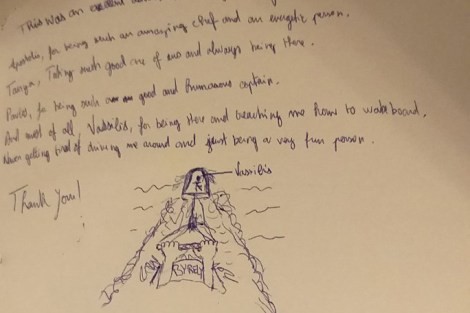 This was an
for being such an amazing chef and an energetic person.
Tanya, Taking such good care of us and always being there.
for being such a good and humourous captain.
And most of all, Vassilis, for being there and teaching me how to wakeboard.
Never getting tired of driving me around and just being a very fun person.
Thank you!
Vassilis